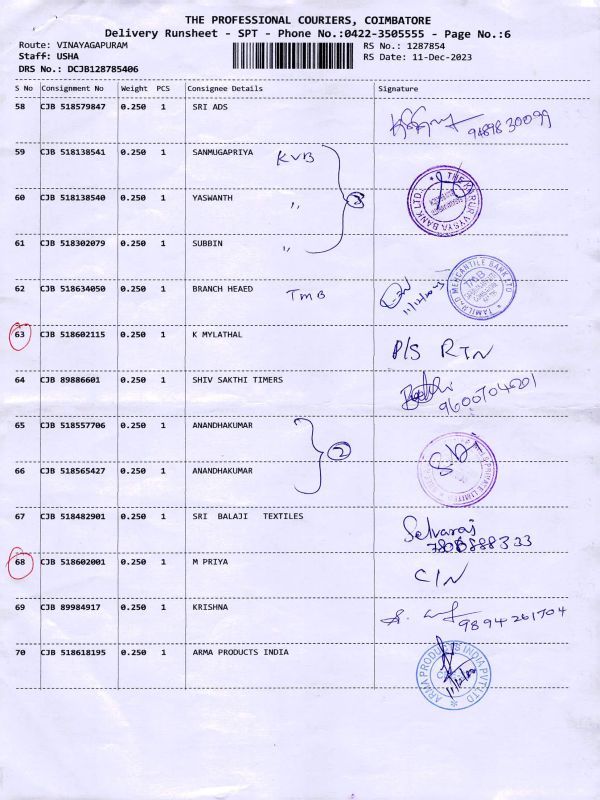 THE PROFESSIONAL COURIERS, COIMBATORE
Delivery Runsheet - SPT - Phone No.:0422-3505555 - Page No.:6
Route: VINAYAGAPURAM RS No.: 1287854
Staff: USHA RS Date: 11-Dec-2023
DRS No.: DCJB128785406
S No Consignment No Weight PCS Consignee Details Signature
58 CJB 518579847 0.250 1 SRI ADS 9489830099
59 CJB 518138541 0.250 1 SANMUGAPRIYA KVB
60 CJB 518138540 0.250 1 YASWANTH ,, 3 THE KARUR VYSYA BANK LTD.
61 CJB 518302079 0.250 1 SUBBIN ,,
62 CJB 518634050 0.250 1 BRANCH HEAED TMB 11/12/2023 TAMILNAD MERCANTILE BANK LTD TMB
63 CJB 518602115 0.250 1 K MYLATHAL P/S RTN
64 CJB 89886601 0.250 1 SHIV SAKTHI TIMERS 9600704201
65 CJB 518557706 0.250 1 ANANDHAKUMAR 2
66 CJB 518565427 0.250 1 ANANDHAKUMAR PRIVATE LIMITED
67 CJB 518482901 0.250 1 SRI BALAJI TEXTILES Selvaraj
68 CJB 518602001 0.250 1 M PRIYA C/N
69 CJB 89984917 0.250 1 KRISHNA 9894261704
70 CJB 518618195 0.250 1 ARMA PRODUCTS INDIA ARMA PRODUCTS INDIA PVT LTD